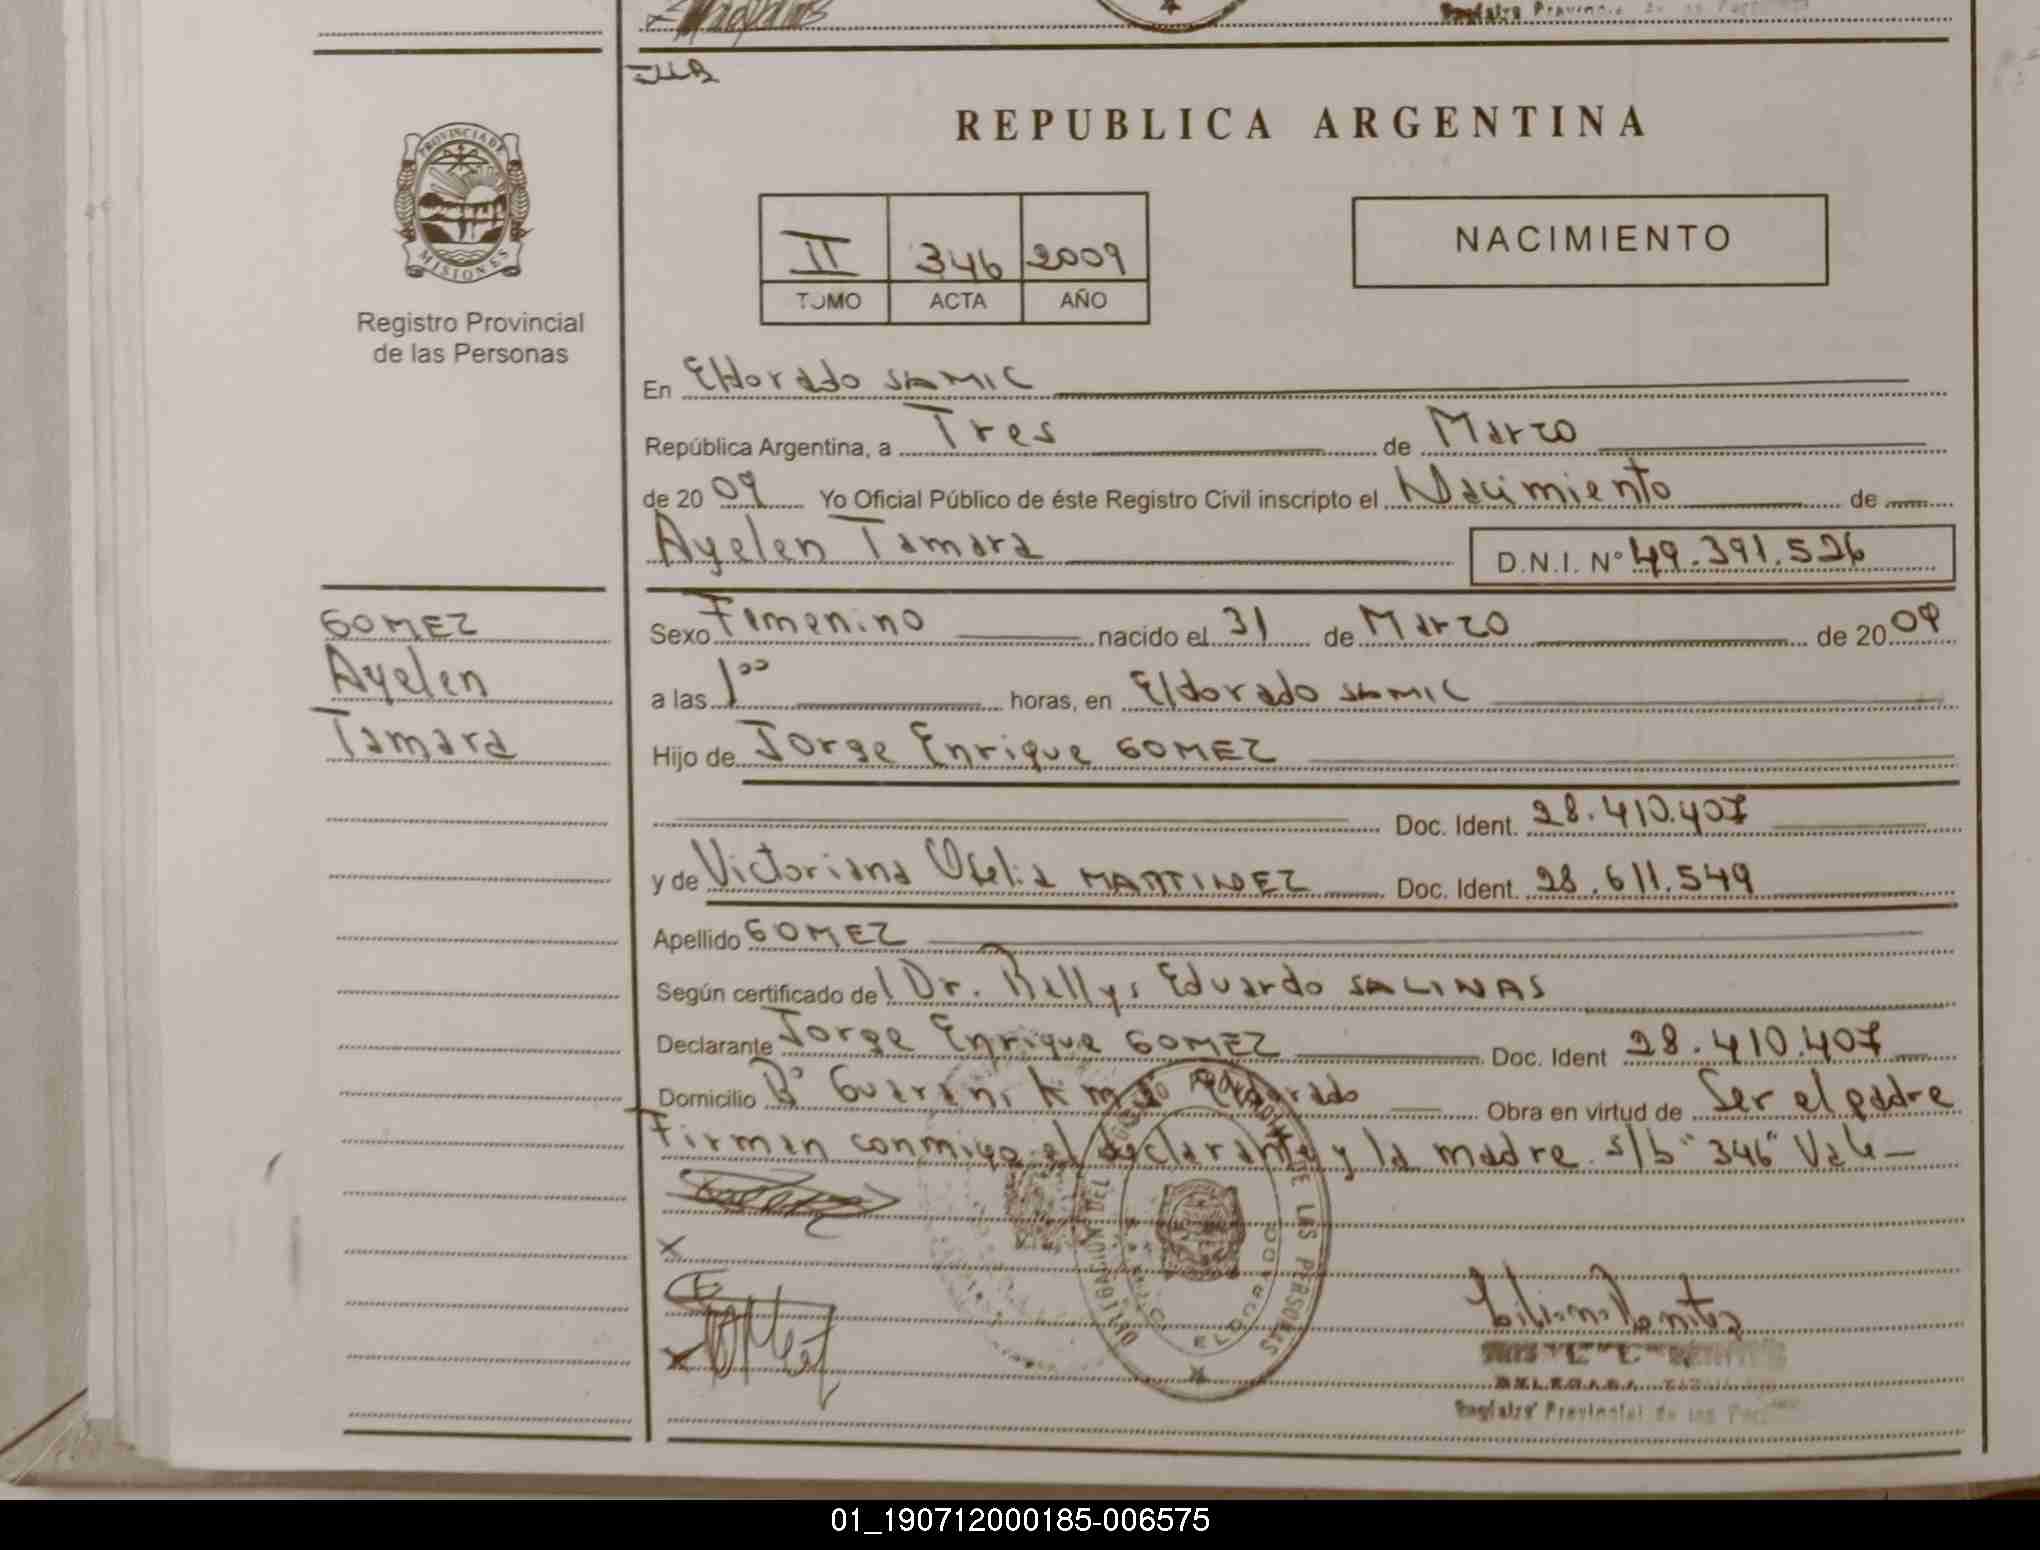 PROVINCIA DE
MISIONES
Registro Provincial
de las Personas
GOMEZ
Ayelen
Tamara
REPUBLICA ARGENTINA
II 346 2009
TOMO ACTA AÑO
NACIMIENTO
En Eldorado SAMIC
República Argentina, a Tres de Marzo
de 20 09 Yo Oficial Público de éste Registro Civil inscripto el Nacimiento de
Ayelen Tamara D.N.I. Nº 49.391.526
Sexo Femenino nacido el 31 de Marzo de 20 09
a las 1⁰⁰ horas, en Eldorado SAMIC
Hijo de Jorge Enrique GOMEZ
Doc. Ident. 28.410.407
y de Victoriana Ofelia MARTINEZ Doc. Ident. 28.611.549
Apellido GOMEZ
Según certificado del Dr. Rellys Eduardo SALINAS
Declarante Jorge Enrique GOMEZ Doc. Ident 28.410.407
Domicilio Bº Guarani Km Eldorado Obra en virtud de Ser el padre
Firman conmigo el declarante y la madre. s/b "346" Vale
DELEGACION DEL REGISTRO PROVINCIAL DE LAS PERSONAS
ELDORADO
Registro Provincial de las
01_190712000185-006575